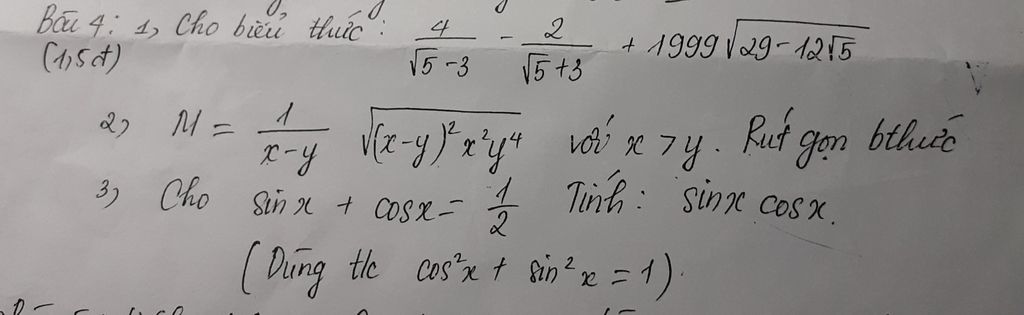 Bài 4: 1, Cho biểu thức: 4/(√5 - 3) - 2/(√5 + 3) + 1999√(29 - 12√5)
(1,5đ)
2, M = 1/(x - y) √((x - y)²x²y⁴) với x > y. Rút gọn bthức
3, Cho sinx + cosx = 1/2 Tính: sinx cosx.
(Dùng t/c cos²x + sin²x = 1).